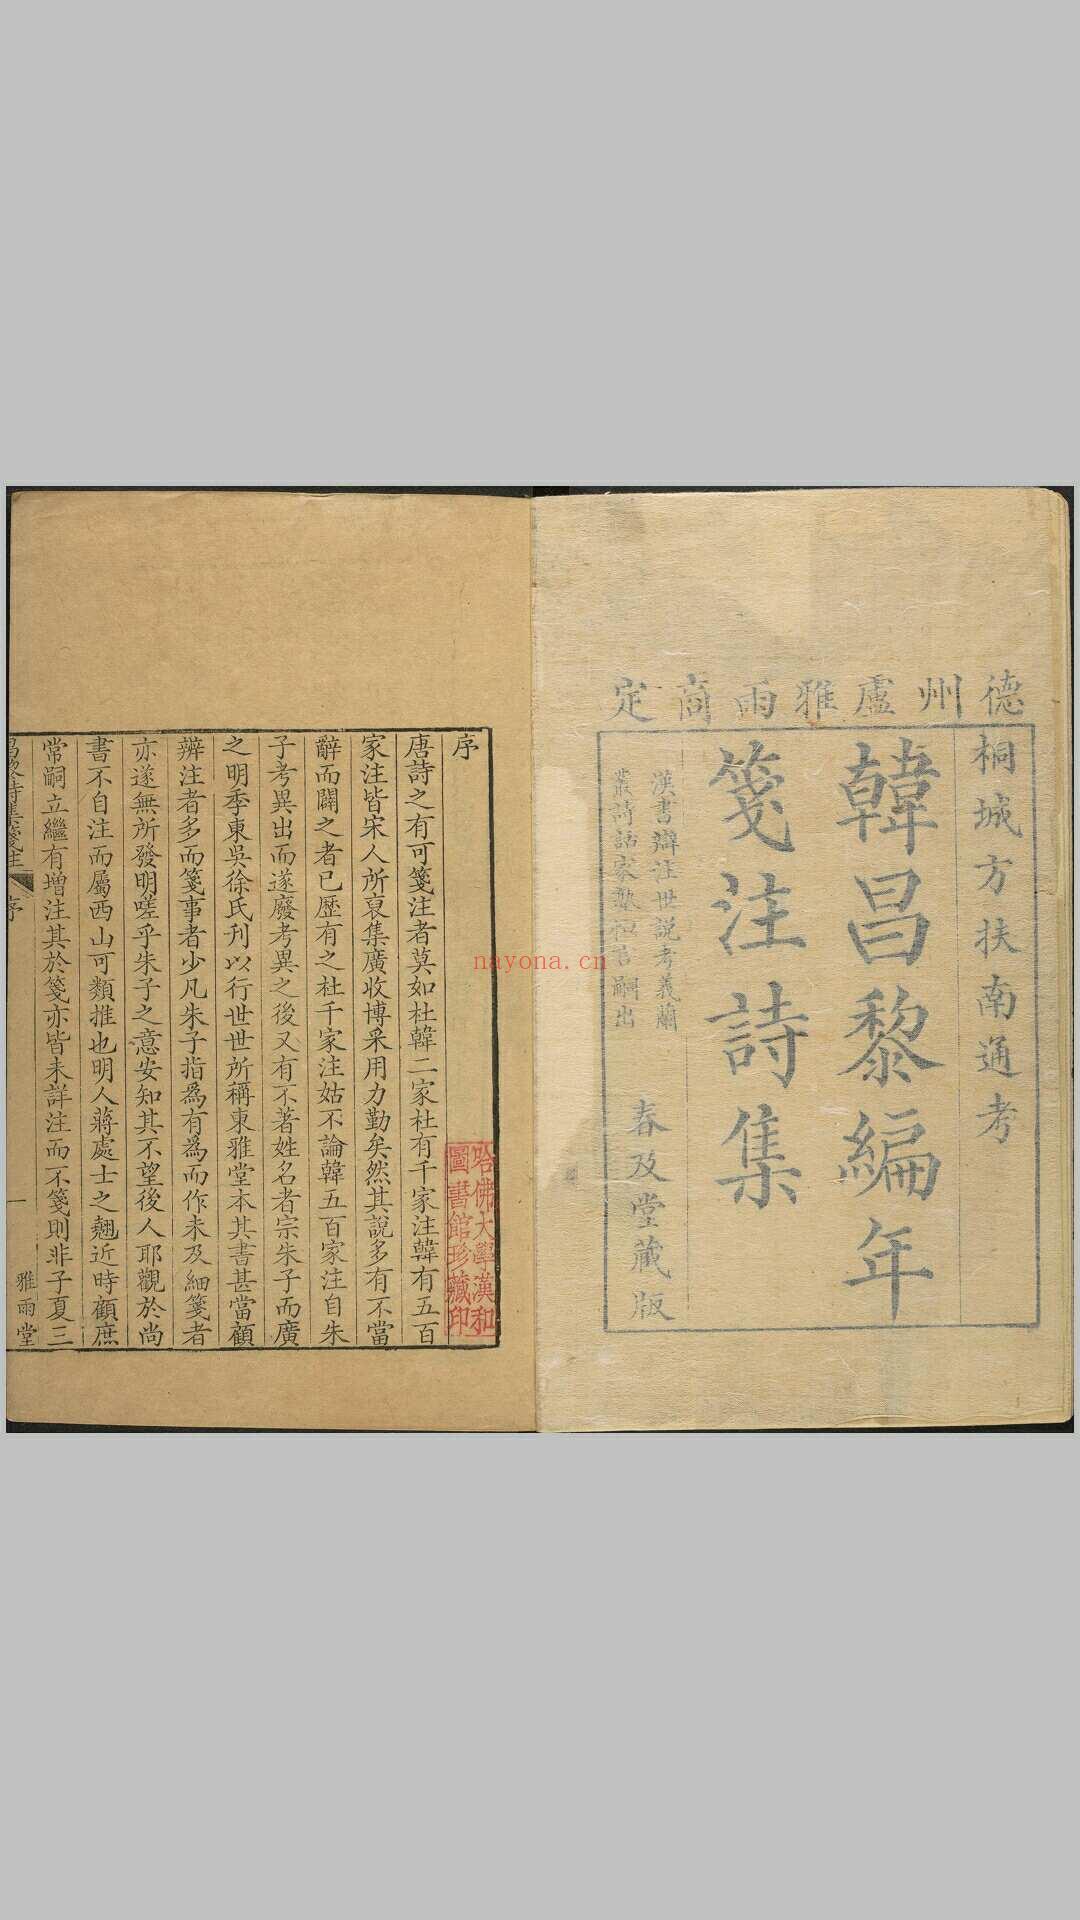 德州盧雅雨商定
桐城方扶南通考
韓昌黎編年
箋注詩集
漢書辯注世說考義蘭
叢詩話家塾恒言嗣出
春及堂藏版
序
唐詩之有可箋注者莫如杜韓二家杜有千家注韓有五百
家注皆宋人所裒集廣收博釆用力勤矣然其說多有不當
辭而闢之者已歷有之杜千家注姑不論韓五百家注自朱
子考異出而遂廢考異之後又有不著姓名者宗朱子而廣
之明季東吳徐氏刊以行世世所稱東雅堂本其書甚當顧
辨注者多而箋事者少凡朱子指為有為而作未及細箋者
亦遂無所發明嗟乎朱子之意安知其不望後人耶觀於尚
書不自注而屬西山可類推也明人蔣處士之翹近時顧庶
常嗣立繼有增注其於箋亦皆未詳注而不箋則非子夏三
昌黎詩集箋注
序
一
雅雨堂
哈佛大學漢和
圖書館珍藏印
nayona.cn